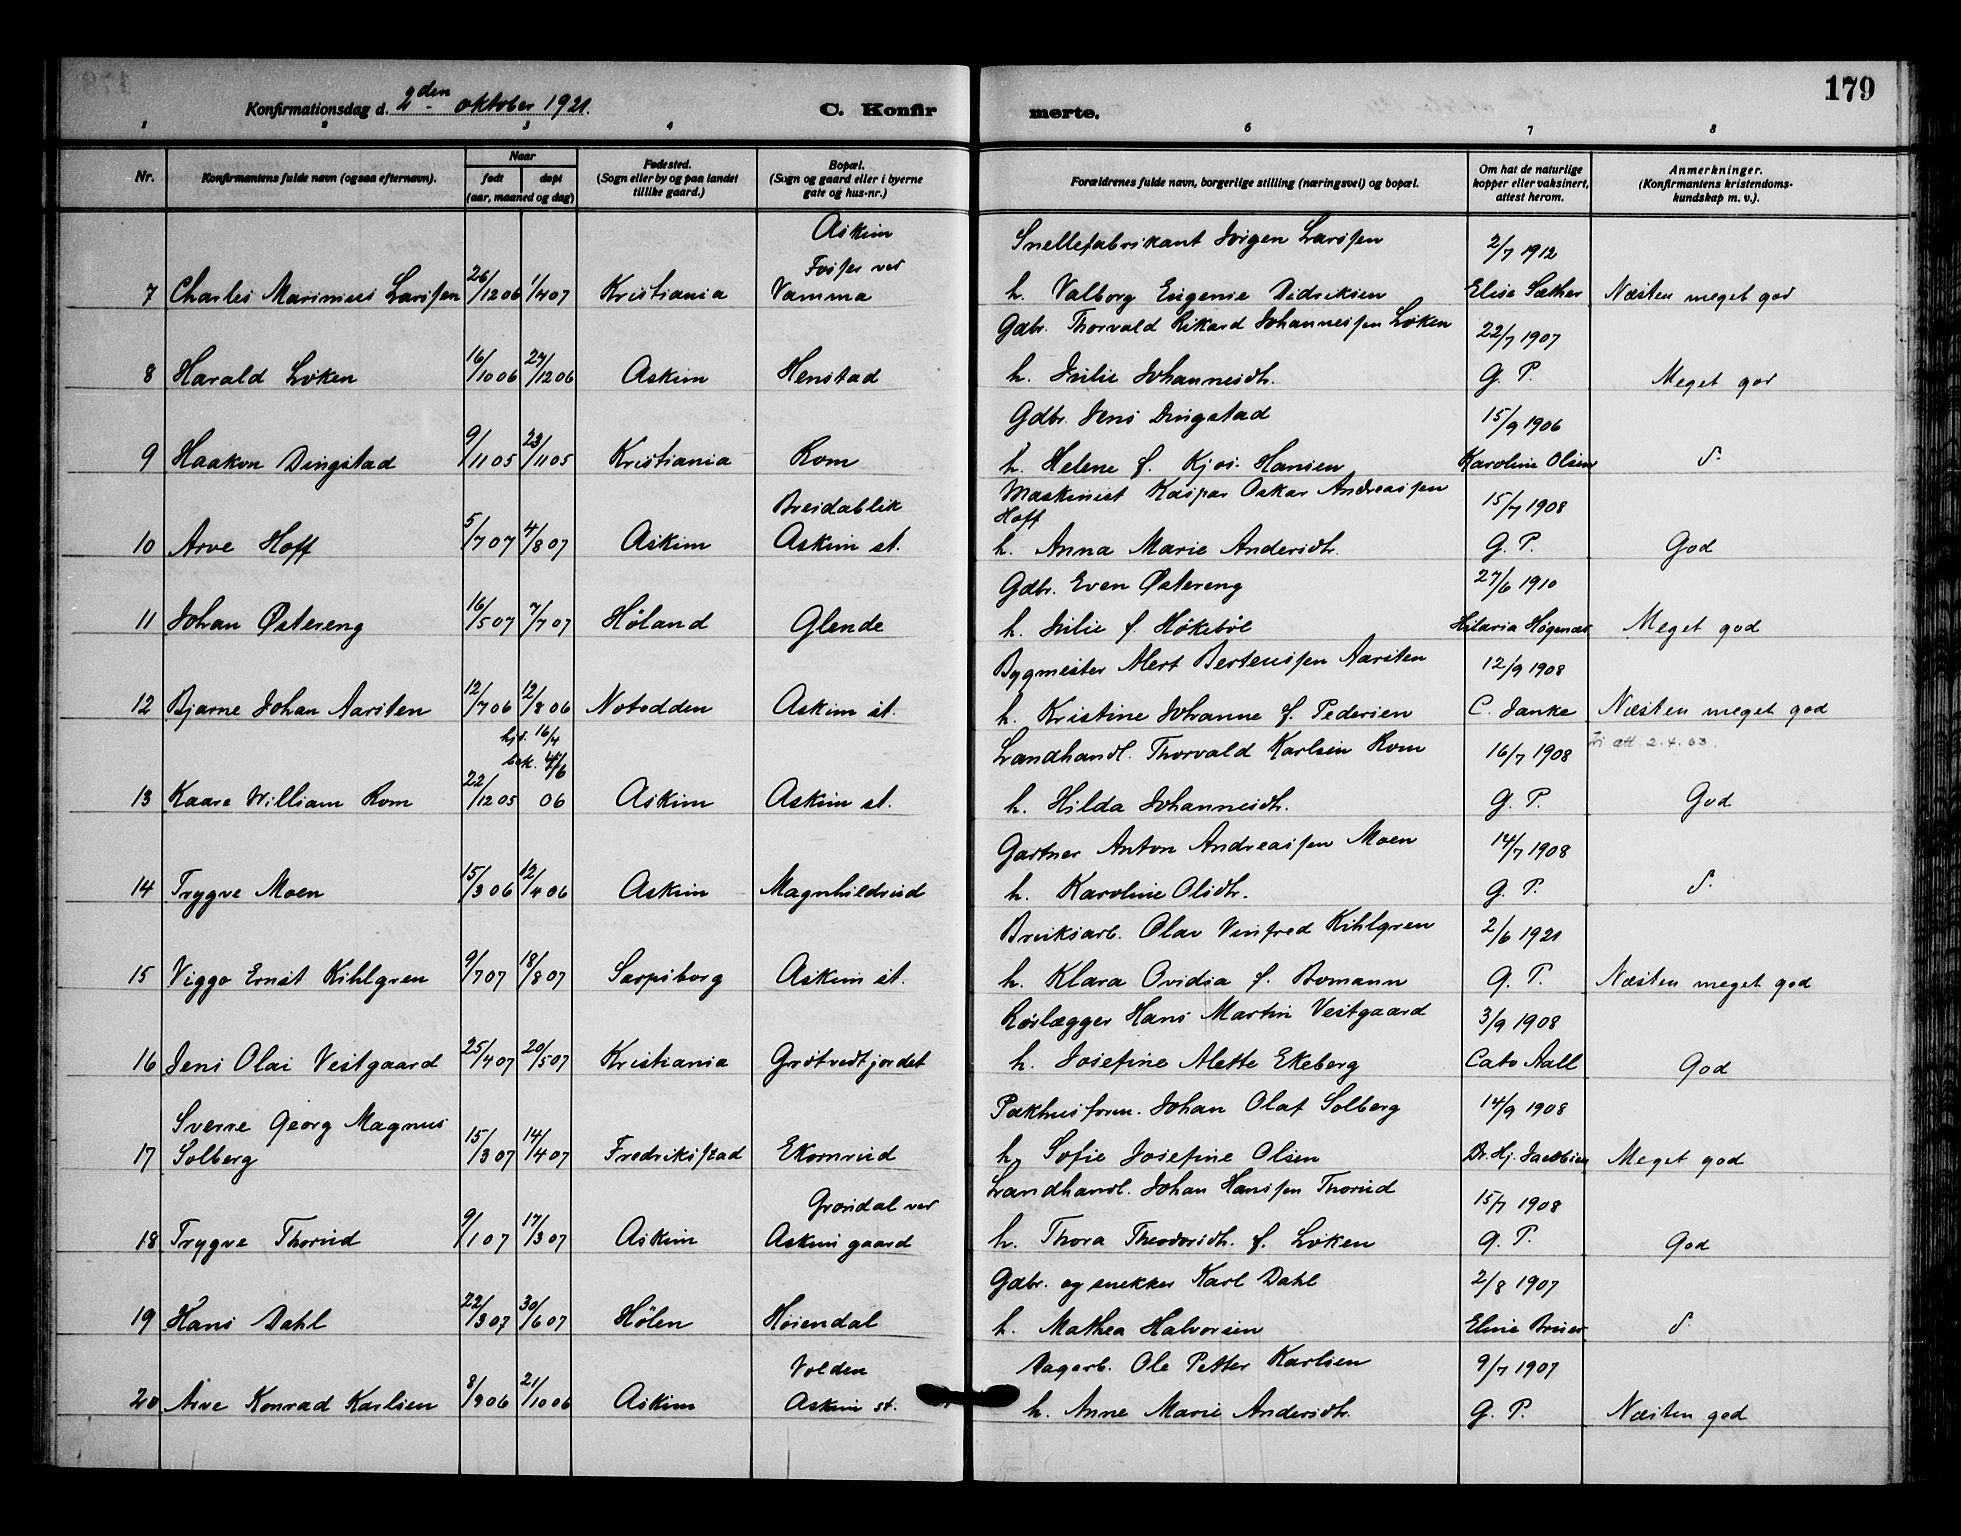 179
Konfirmationsdag d. 2den oktober 1921.
C. Konfir
merte.
1 2 3 4 6 7 8
Nr.
Konfirmantens fulde navn (ogsaa efternavn).
Naar
født
døpt
(aar, maaned og dag)
Fødested.
(Sogn eller by og paa landet
tillike gaard.)
Bopæl.
(Sogn og gaard eller i byerne
gate og hus-nr.)
Forældrenes fulde navn, borgerlige stilling (næringsvei) og bopæl.
Om hat de naturlige
kopper eller vaksinert,
attest herom.
Anmerkninger.
(Konfirmantens kristendoms-
kundskap m. v.).
Askim
Fosser ved
Snellefabrikant Jørgen Larssen 2/7 1912
7 Charles Marinius Larssen 26/12 06 1/4 07 Kristiania Vamma h. Valborg Eugenie Didriksen Elise Sæther Næsten meget god
Gdbr. Thorvald Rikard Johannessen Løken 22/7 1907
8 Harald Løken 16/10 06 27/12 06 Askim Henstad h. Julie Johannesdtr. G. P. Meget god
Gdbr. Jens Dingstad 15/9 1906
9 Haakon Dingstad 9/11 05 23/11 05 Kristiania Rom h. Helene f. Kjos-Hansen Karoline Olsen d-
Breidablik
Maskinist Kaspar Oskar Andreassen 15/7 1908
Hoff
10 Arve Hoff 5/7 07 4/8 07 Askim Askim st. h. Anna Marie Andersdtr. G. P. God
Gdbr. Even Østereng 27/6 1910
11 Johan Østereng 16/5 07 7/7 07 Høland Glende h. Julie f. Høkebøl Hilaria Høgenæs Meget god
Bygmester Mert Berteussen Aarsten 12/9 1908
12 Bjarne Johan Aarsten 12/7 06 12/8 06 Notodden Askim st. h. Kristine Johanne f. Pedersen C. Janke Næsten meget god
hjd. 16/4
bek. 4/6
Landhandl. Thorvald Karlsen Rom 16/7 1908 att. 2.4.63.
13 Kaare William Rom 22/12 05 06 Askim Askim st. h. Hilda Johannesdtr. G. P. God
Gartner Anton Andreassen Moen 14/7 1908
14 Trygve Moen 15/3 06 12/4 06 Askim Magnhildrud h. Karoline Olsdtr. G. P. d-
Bruksarb. Olav Vinfred Kihlgren 2/6 1921
15 Viggo Ernst Kihlgren 9/7 07 18/8 07 Sarpsborg Askim st. h. Klara Ovidia f. Bomann G. P. Næsten meget god
Rørlægger Hans Martin Vestgaard 3/9 1908
16 Jens Olai Vestgaard 25/4 07 20/5 07 Kristiania Grøtvedtjordet h. Josefine Alette Ekeberg Cato Aall God
Sverre Georg Magnus
Pakhusform. Johan Olaf Solberg 14/9 1908
17 Solberg 15/3 07 14/4 07 Fredriksstad Ekornrud h. Sofie Josefine Olsen Dr. Hj. Jacobsen Meget god
Grøndal ved
Landhandl. Johan Hanssen Thorud 15/7 1908
18 Trygve Thorud 9/1 07 17/3 07 Askim Askim gaard h. Thora Theodorsdtr. f. Løken G. P. God
Gdbr. og snekker Karl Dahl 2/8 1907
19 Hans Dahl 22/3 07 30/6 07 Hølen Høiendal h. Mathea Halvorsen Eline Bruer d-
Volden
Dagarb. Ole Petter Karlsen 9/7 1907
20 Arve Konrad Karlsen 8/9 06 21/10 06 Askim Askim st. h. Anne Marie Andersdtr. G. P. Næsten god